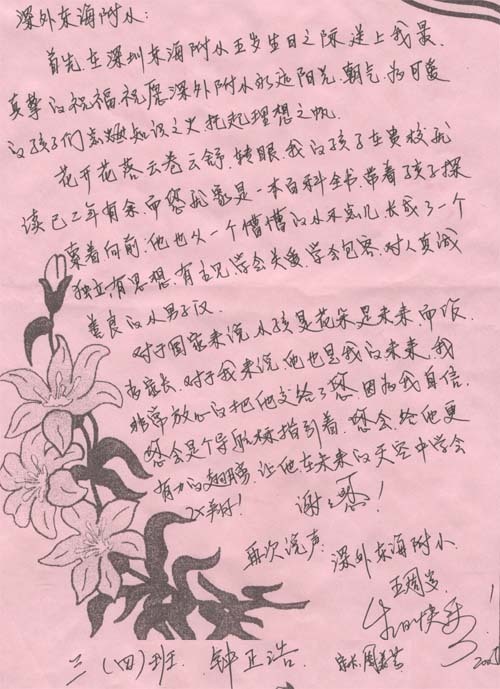 深外东海附小：
首先,在深圳东海附小五岁生日之际,送上我最
真挚的祝福,祝愿深外附小永远阳光、朝气,为可爱
的孩子们点燃知识之火,托起理想之帆.
花开花落云卷云舒,转眼,我的孩子在贵校就
读已2年有余.而您就象是一本百科全书,带着孩子探
索着向前,他也从一个懵懂的小不点儿长成了一个
独立,有思想,有主见,学会关爱,学会包容,对人真诚
善良的小男子汉.
对于国家来说,小孩是花朵是未来,而作
为家长,对于我来说,他也是我的未来,我
非常放心的把他交给了您,因为我自信.
您会是个导航标指引着,您会给他更
有力的翅膀,让他在未来的天空中学会
飞翔!    谢谢您!
再次说声:深外东海附小.
五周岁
生日快乐
三(四)班  钟正浩